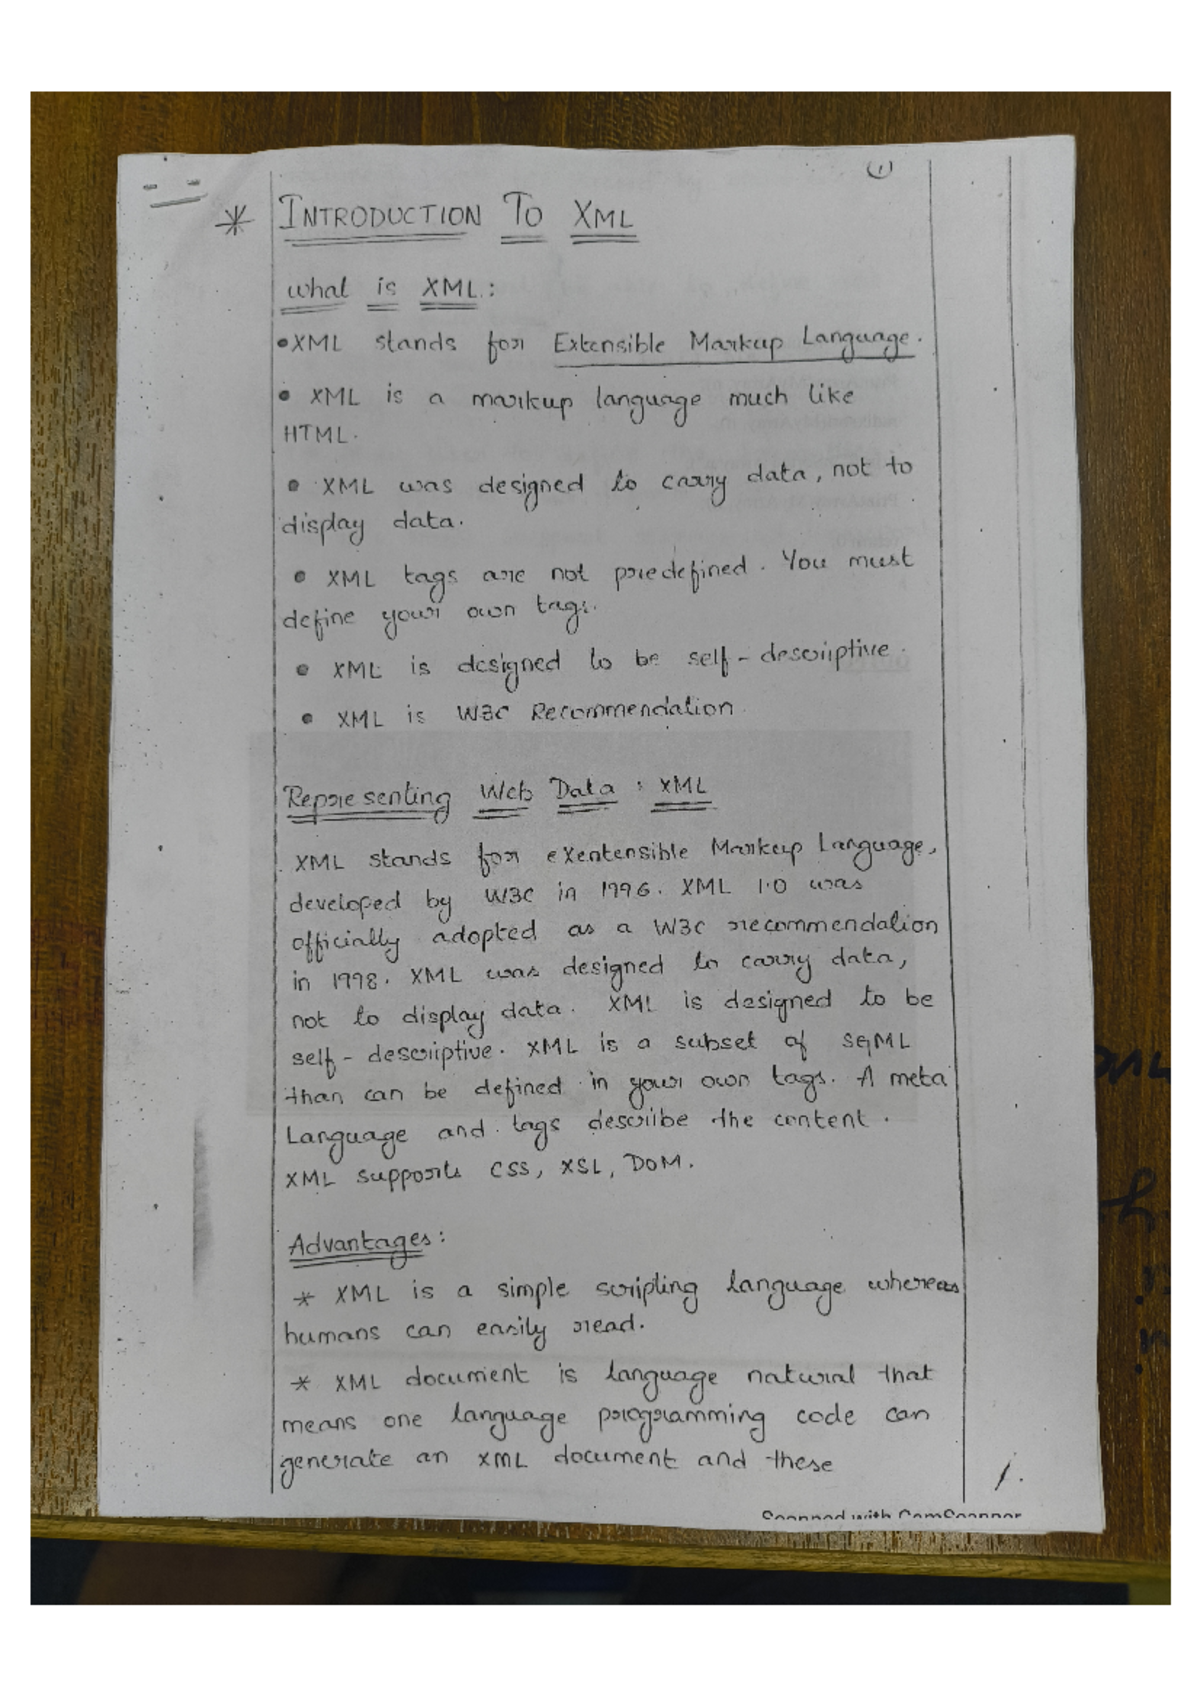 (1)
* INTRODUCTION TO XML
what is XML:
• XML stands for Extensible Markup Language.
• XML is a markup language much like
HTML.
• XML was designed to carry data, not to
display data.
• XML tags are not predefined. You must
define your own tags.
• XML is designed to be self-descriptive.
• XML is W3C Recommendation
Representing Web Data : XML
XML stands for eXentensible Markup Language,
developed by W3C in 1996. XML 1.0 was
officially adopted as a W3C recommendation
in 1998. XML was designed to carry data,
not to display data. XML is designed to be
self-descriptive. XML is a subset of SGML
than can be defined in your own tags. A meta
Language and tags describe the content.
XML supports CSS, XSL, DOM.
Advantages:
* XML is a simple scripting language whereas
humans can easily read.
* XML document is language natural that
means one language programming code can
generate an XML document and these
1.
Scanned with CamScanner